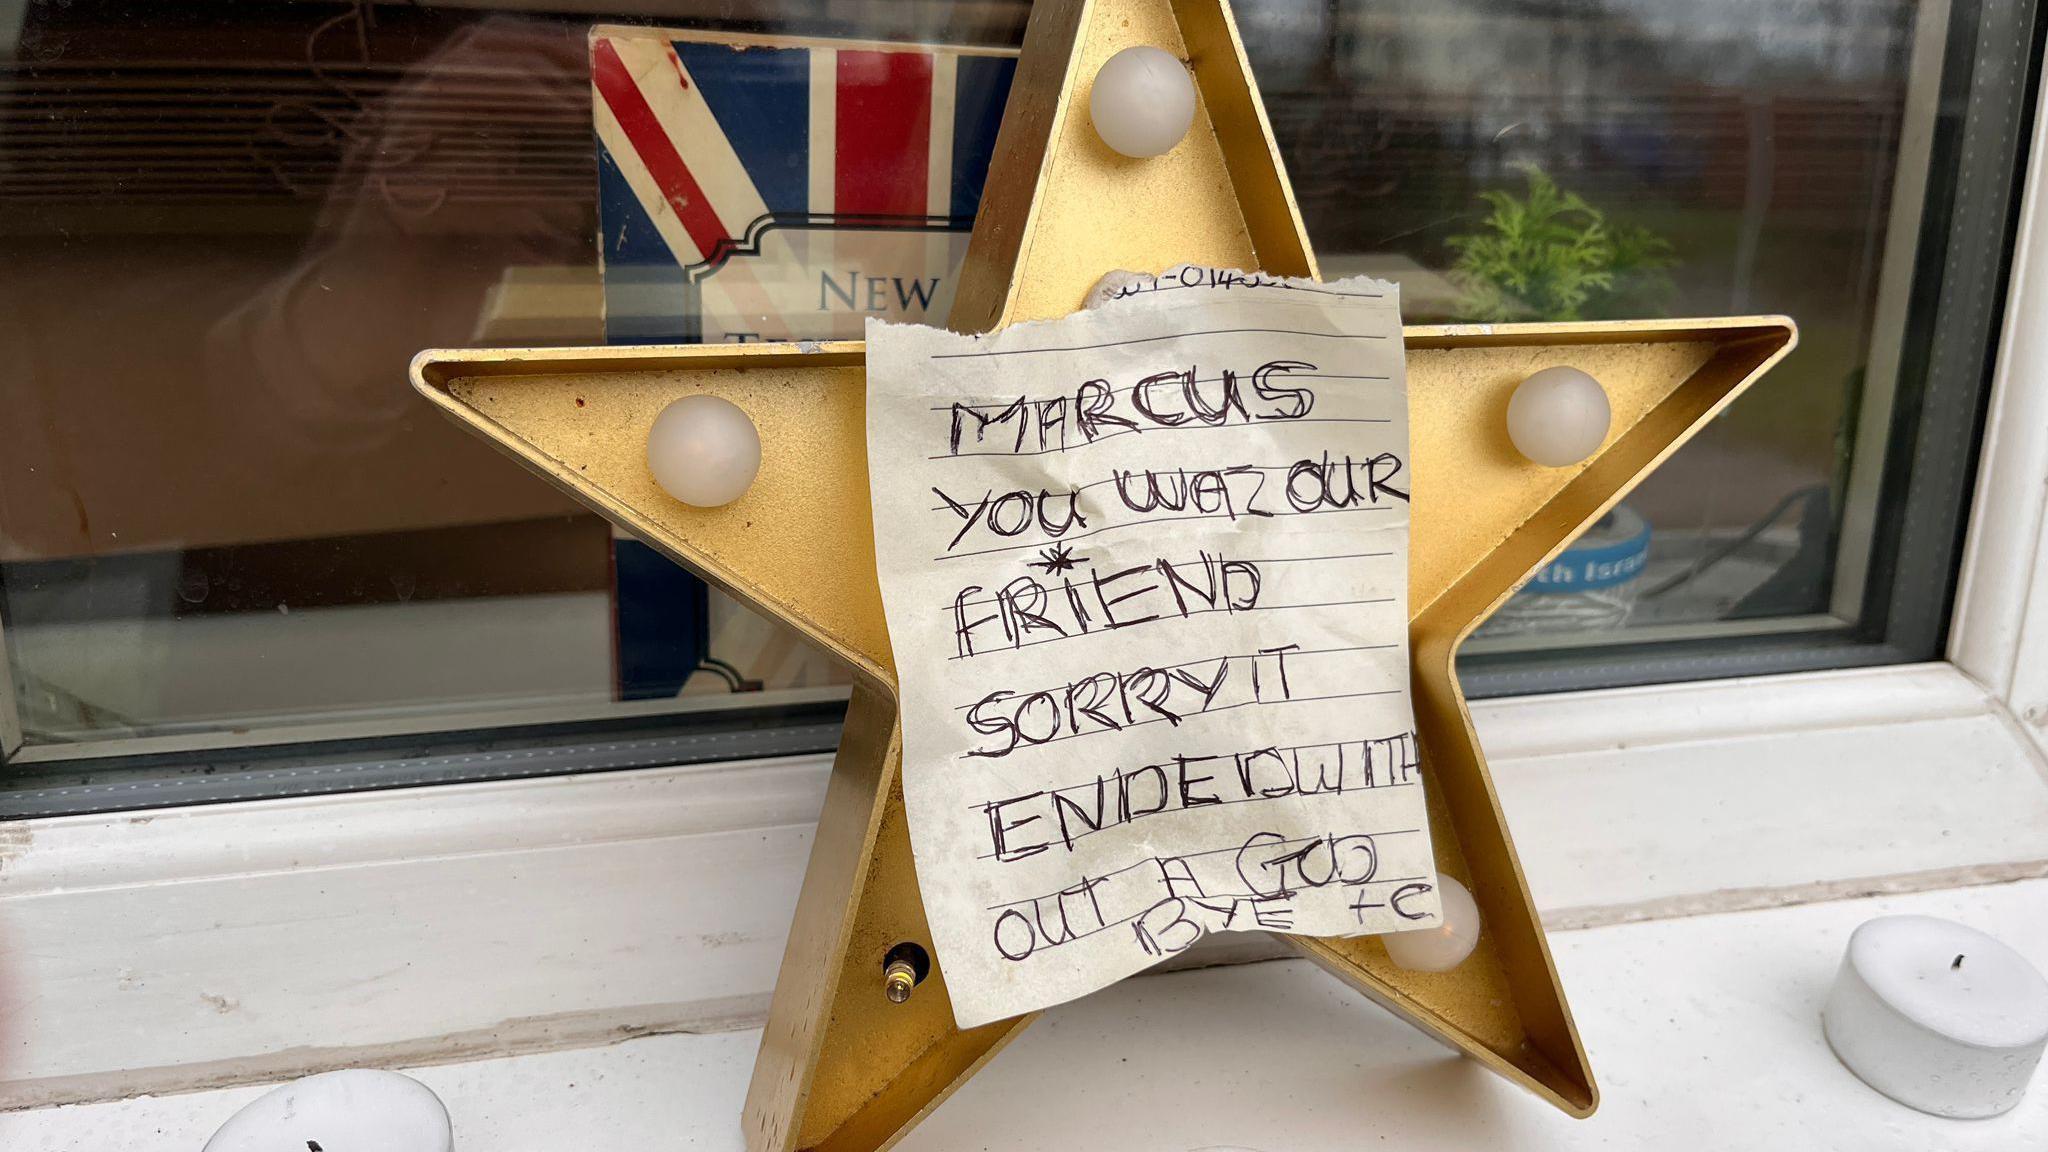 NEW
MARCUS
YOU WAZ OUR
FRIEND
SORRY IT
ENDED WITH
OUT A GOD
BYE + C